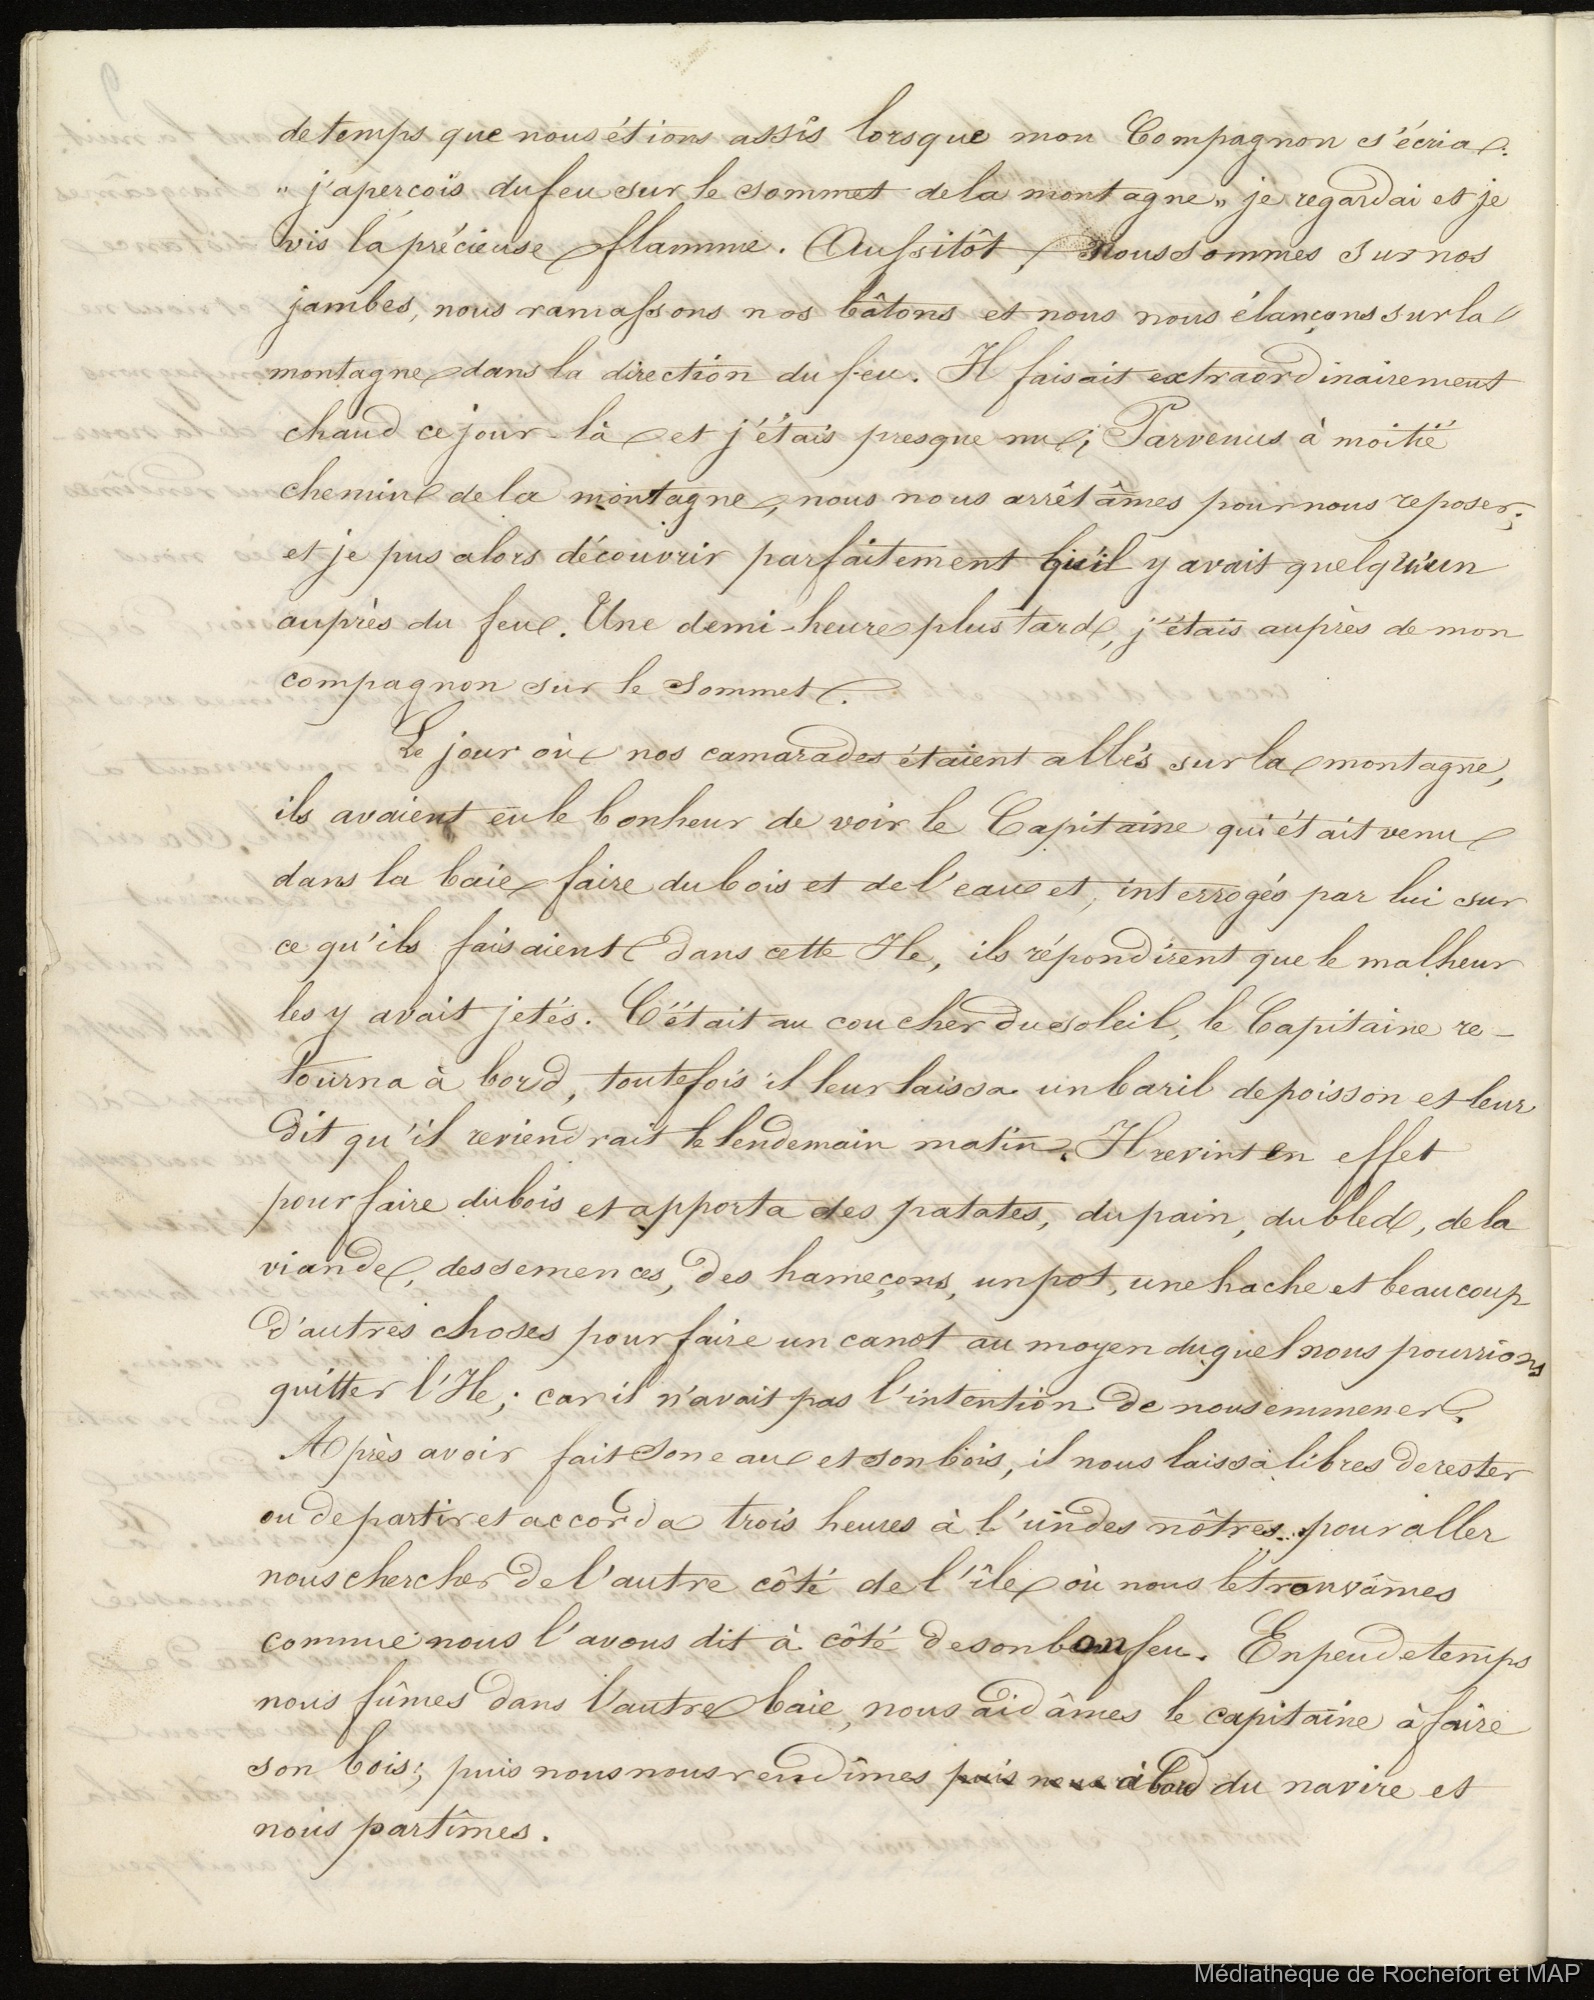 de temps que nous étions assis lorsque mon Compagnon s'écria:
" j'apercois du feu sur le sommet de la montagne " je regardai et je
vis la précieuse flamme. Aussitôt, nous sommes sur nos
jambes, nous ramassons nos bâtons et nous nous élançons sur la
montagne dans la direction du feu. Il faisait extraordinairement
chaud ce jour-là et j'étais presque nu; Parvenus à moitié
chemin de la montagne, nous nous arrêtâmes pour nous reposer;
et je pus alors découvrir parfaitement qu'il y avait quelqu'un
auprès du feu. Une demi-heure plus tard, j'étais auprès de mon
compagnon sur le sommet.
Le jour où nos camarades étaient allés sur la montagne,
ils avaient eu le bonheur de voir le Capitaine qui était venu
dans la baie faire du bois et de l'eau et, interrogés par lui sur
ce qu'ils faisaient dans cette Ile, ils répondirent que le malheur
les y avait jetés. C'était au coucher du soleil, le Capitaine re-
tourna à bord, toutefois il leur laissa un baril de poisson et leur
dit qu'il reviendrait le lendemain matin. Il revint en effet
pour faire du bois et apporta des patates, du pain, du bled, de la
viande, des semences, des hameçons, un pot, une hache et beaucoup
d'autres choses pour faire un canot au moyen duquel nous pourrions
quitter l'Ile; car il n'avait pas l'intention de nous emmener.
Après avoir fait son eau et son bois, il nous laissa libres de rester
ou de partir et accorda trois heures à l'un des nôtres pour aller
nous chercher de l'autre côté de l'île où nous le trouvâmes
comme nous l'avons dit à côté de son bon feu. En peu de temps
nous fûmes dans l'autre baie, nous aidâmes le capitaine à faire
son bois; puis nous nous rendîmes puis nous à bord du navire et
nous partîmes.
Médiathèque de Rochefort et MAP